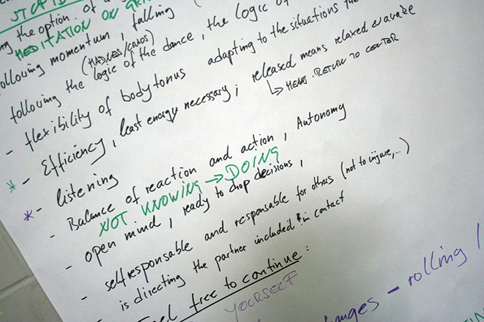 ng the option of
MEDITATION ON
following momentum, falling
(MADNESS/CHAOS)
following the logic of the dance, the logic of
- flexibility of bodytonus adapting to the situations
* - Efficiency, least energy necessary; released means relaxed & awake
↳ MENT. RETURN TO CENTER
* - listening
- Balance of reaction and action, Autonomy
NOT KNOWING → DOING
- open mind, ready to drop decisions,
- selfresponsable and responsable for others (not to injure,...)
- is directing the partner included in contact
feel free to continue:
YOURSELF
- rolling